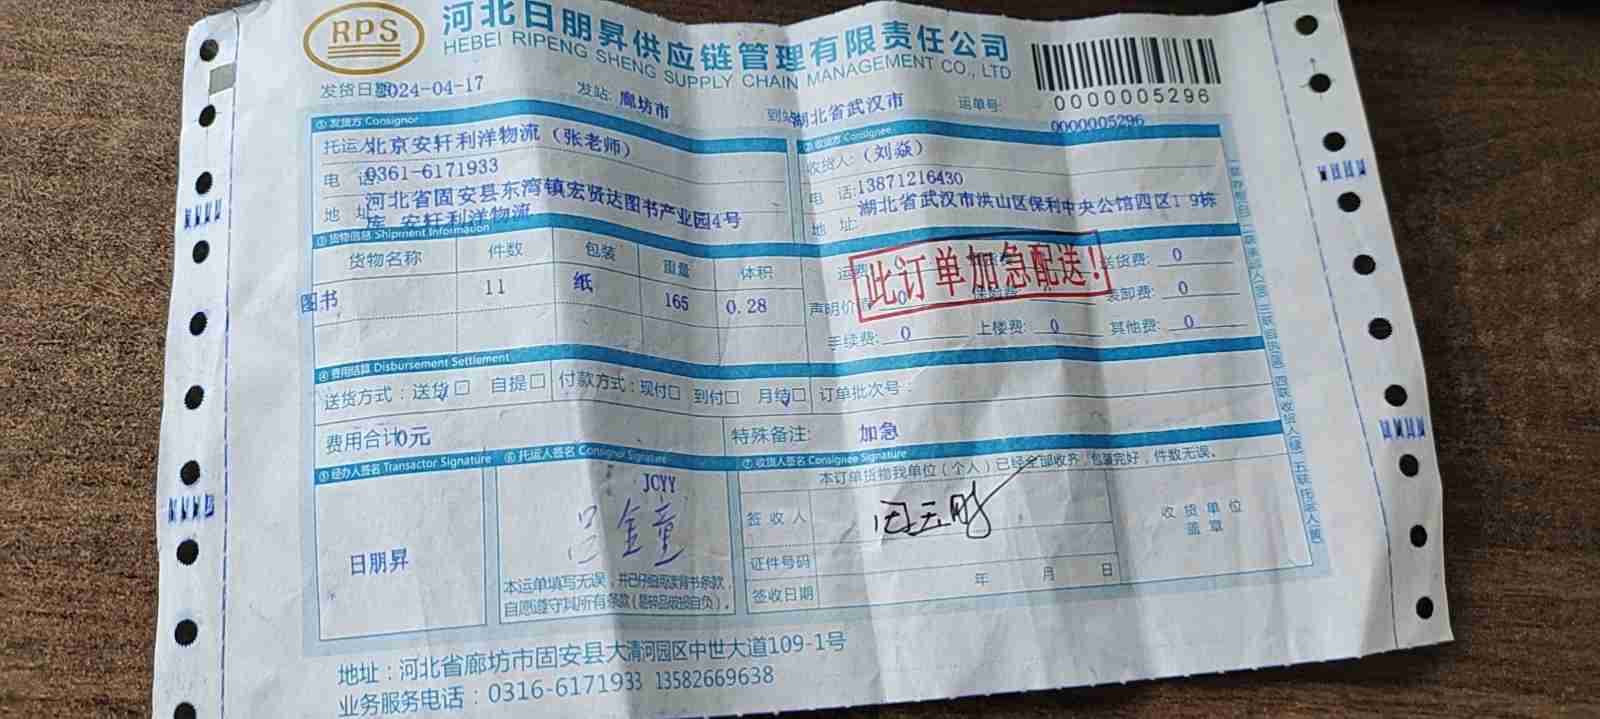 RPS
河北日朋昇供应链管理有限责任公司
HEBEI RIPENG SHENG SUPPLY CHAIN MANAGEMENT CO., LTD
0000005296
发货日期 2024-04-17 发站: 廊坊市 到站 湖北省武汉市 运单号: 0000005296
①发货方 Consignor ②收货方 Consignee
托运人 北京安轩利洋物流（张老师）
收货人:（刘焱）
电 话 0361-6171933
电 话:13871216430
地 址 河北省固安县东湾镇宏贤达图书产业园4号
库 安轩利洋物流
地 址: 湖北省武汉市洪山区保利中央公馆四区19栋
③货物信息 Shipment Information
货物名称 件数 包装 重量 体积
图书 11 纸 165 0.28
运费: 0 送货费: 0
此订单加急配送!
声明价值 0 保险费: 装卸费: 0
手续费: 0 上楼费: 0 其他费: 0
④费用结算 Disbursement Settlement
送货方式：送货□ 自提□ 付款方式：现付□ 到付□ 月结□ 订单批次号：
费用合计 0元 特殊备注: 加急
⑤经办人签名 Transactor Signature ⑥托运人签名 Consignor Signature ⑦收货人签名 Consignee Signature
本订单货物我单位（个人）已经全部收齐，包装完好，件数无误。
JCYY
吕金童
签收人
收货单位
盖章
日朋昇
证件号码
本运单填写无误，并已仔细阅读背书条款，
自愿遵守其所有条款(易碎品破损自负)。
签收日期 年 月 日
地址：河北省廊坊市固安县大清河园区中世大道109-1号
业务服务电话：0316-6171933 13582669638